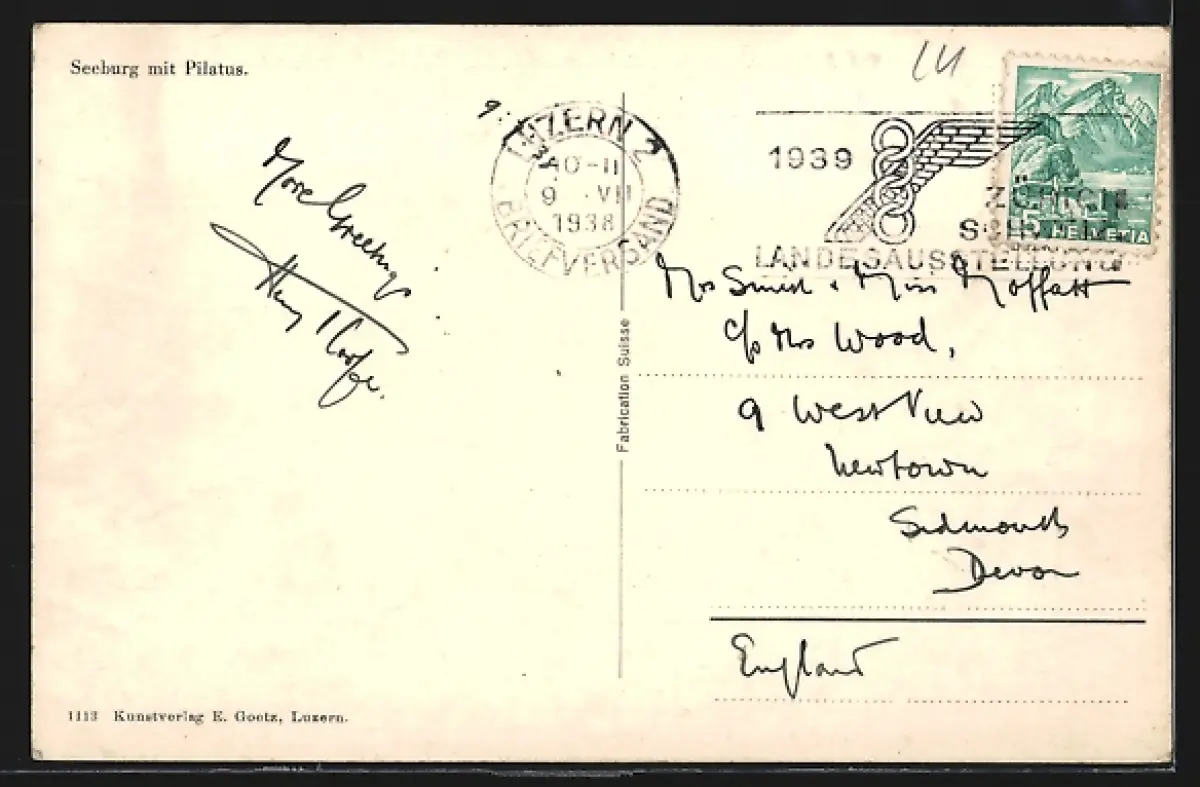 Seeburg mit Pilatus.
14
9.
LUZERN 2
10-11
9 .VII
1938
BRIEFVERSAND
1939
ZÜRICH
LANDESAUSSTELLUNG
5
HELVETIA
More Greetings
Henry
Mrs Smith & Miss Moffatt
c/o Mrs Wood,
9 West View
Newtown
Sidmouth
Devon
England
Fabrication Suisse
1113 Kunstverlag E. Goetz, Luzern.